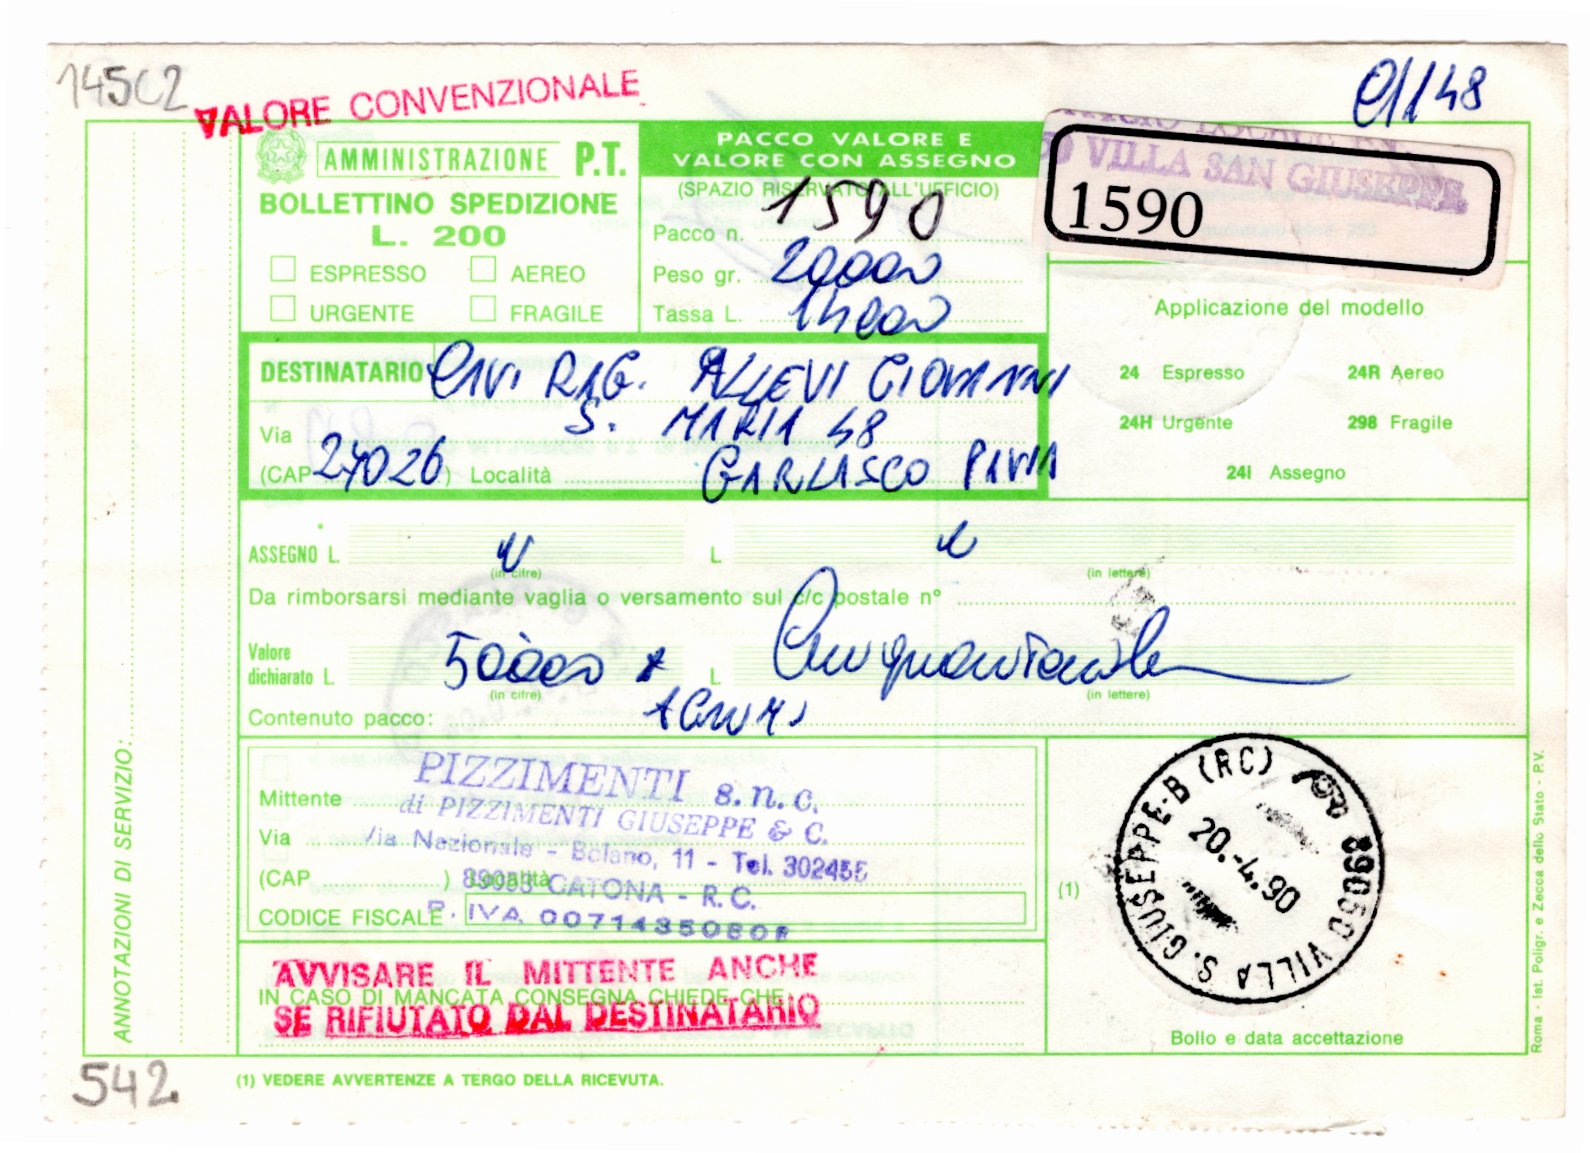 14502
VALORE CONVENZIONALE
AMMINISTRAZIONE P.T.
BOLLETTINO SPEDIZIONE
L. 200
ESPRESSO AEREO
URGENTE FRAGILE
PACCO VALORE E
VALORE CON ASSEGNO
(SPAZIO RISERVATO ALL'UFFICIO)
Pacco n. 1590
Peso gr. 20000
Tassa L. 14000
VILLA SAN GIUSEPPE
1590
Applicazione del modello
24 Espresso 24R Aereo
24H Urgente 298 Fragile
24I Assegno
DESTINATARIO RAG. ALLEVI GIOVANNI
Via S. MARIA 48
(CAP 27026) Località GARLASCO PAVIA
ASSEGNO L. (in cifre) L. (in lettere)
Da rimborsarsi mediante vaglia o versamento sul c/c postale n°
Valore
dichiarato L. 50000 (in cifre) L. Cinquantamila (in lettere)
Contenuto pacco:
Mittente PIZZIMENTI s.n.c.
di PIZZIMENTI GIUSEPPE & C.
Via Via Nazionale - Bolano, 11 - Tel. 302455
(CAP ) Località 89055 CATONA - R.C.
CODICE FISCALE P. IVA
AVVISARE IL MITTENTE ANCHE
IN CASO DI MANCATA CONSEGNA CHIEDE CHE
SE RIFIUTATO DAL DESTINATARIO
(1)
89050 VILLA S. GIUSEPPE-B (RC)
20.-4.90
Bollo e data accettazione
ANNOTAZIONI DI SERVIZIO:
Roma - Ist. Poligr. e Zecca dello Stato - P.V.
542
(1) VEDERE AVVERTENZE A TERGO DELLA RICEVUTA.